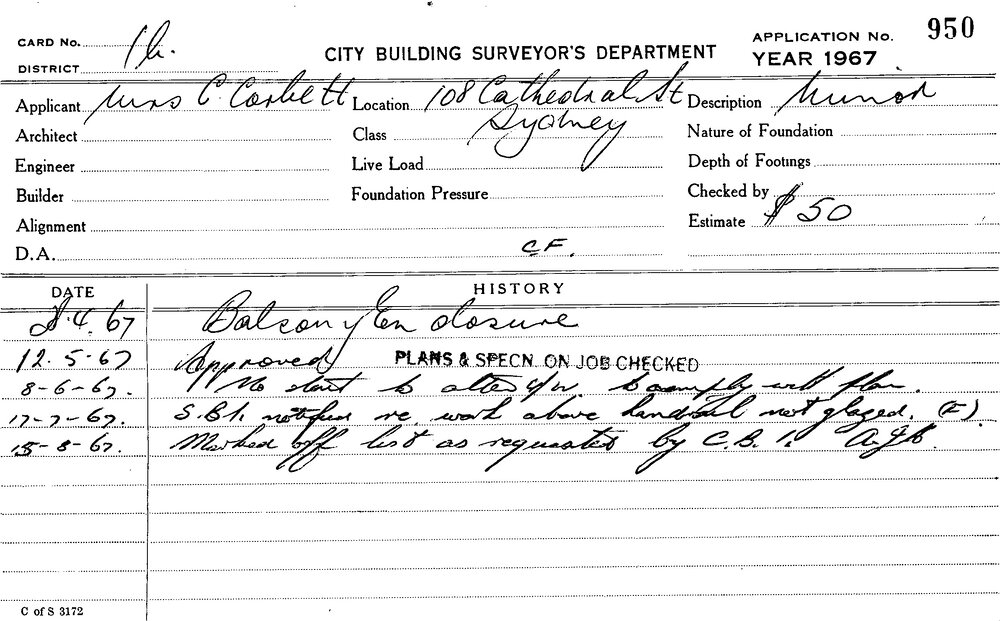 CARD No. 1b.
CITY BUILDING SURVEYOR'S DEPARTMENT
APPLICATION No. 950
DISTRICT
YEAR 1967
Applicant Mrs C. Corbett Location 108 Cathedral St Description Minor
Architect Class Sydney Nature of Foundation
Engineer Live Load Depth of Footings
Builder Foundation Pressure Checked by
Alignment Estimate $50
D.A. C.F.
DATE HISTORY
.4.67 Balcony Enclosure
12.5.67 Approved PLANS & SPECN. ON JOB CHECKED
8-6-67. No start to alter to comply with plan.
17-7-67. S.B.I. re. work above handrail not glazed. (E)
15-8-67. Marked off list as requested by C.B.I.
C of S 3172